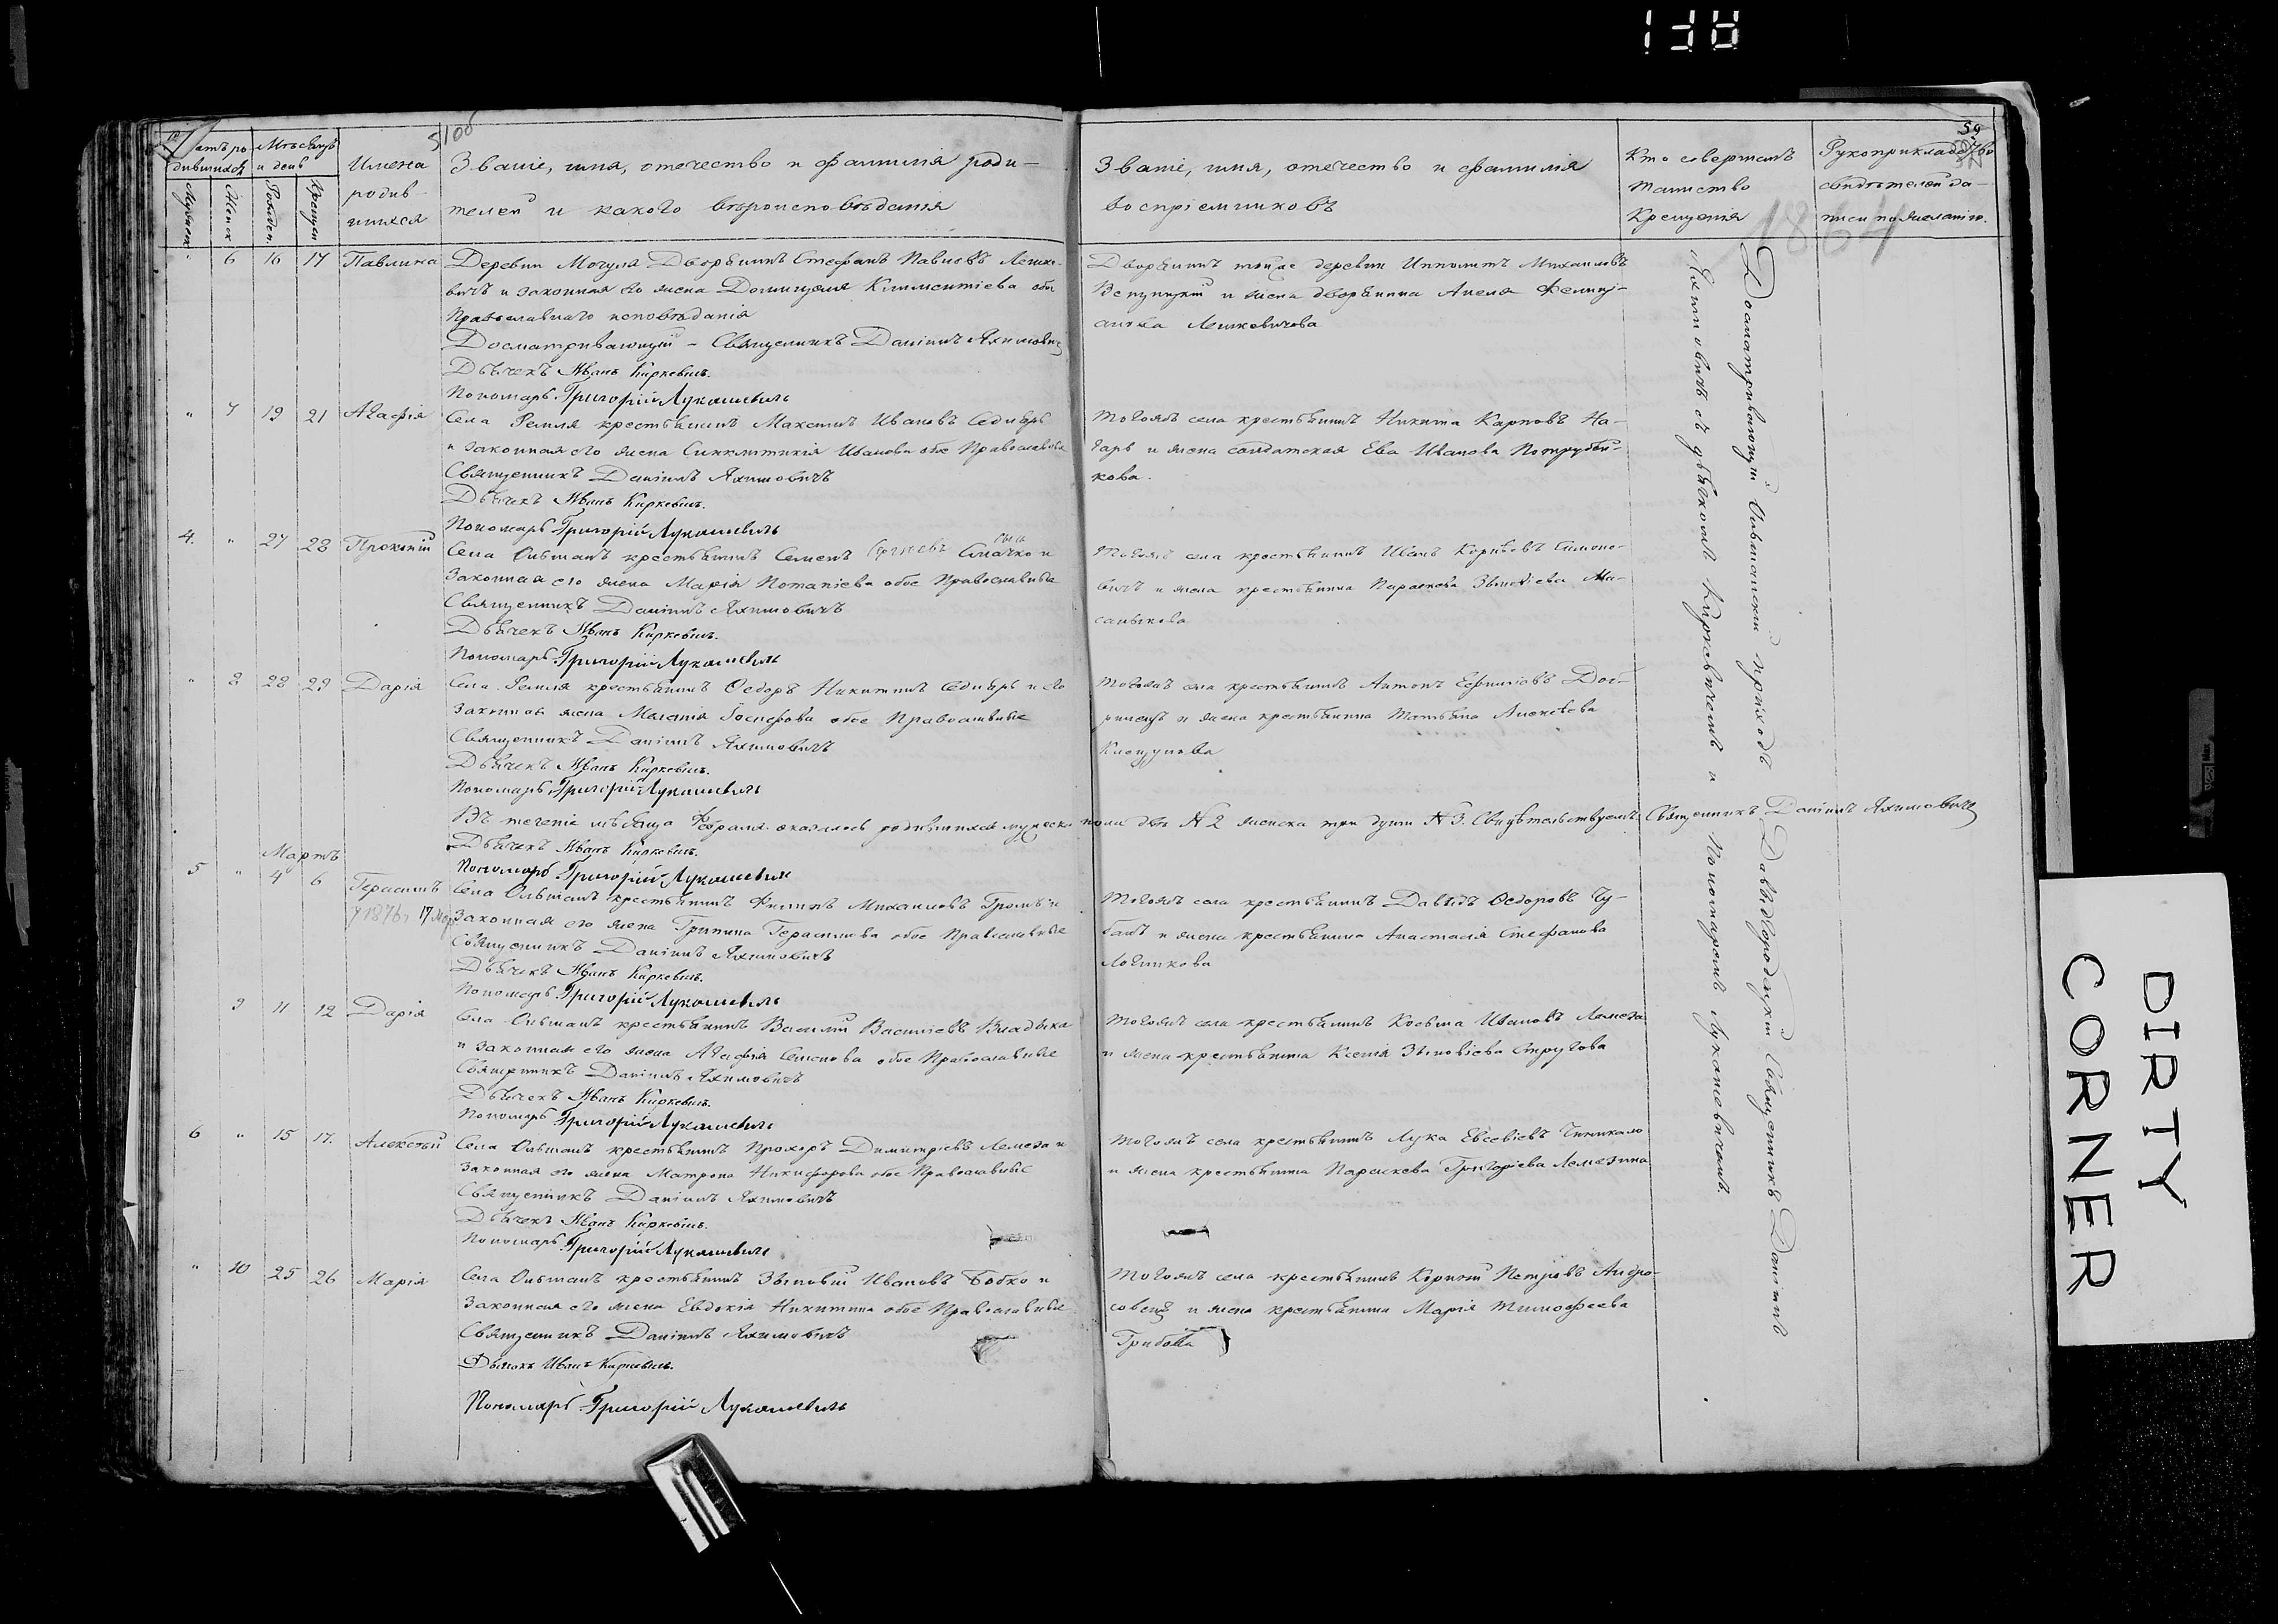 Счетъ ро- Мѣсяцъ
дившихся и день
Мужеск. Женск. Рожден. Крещен.
Имена
родив-
шихся
Званіе, имя, отечество и фамилія роди-
телей и какого вѣроисповѣданія
Званіе, имя, отечество и фамилія
воспріемниковъ
Кто совершалъ
Таинство
Крещенія
Рукоприкладство
свидѣтелей за-
писи по желанію.
59
1864
" 6 16 17 Павлина
Деревни Могуля Дворянинъ Стефанъ Павловъ Лешке-
вичъ и законная его жена Домицеля Климентіева оба
Православнаго исповѣданія
Досматривающій - Священникъ Даніилъ Яхимовичъ
Дьячекъ Иванъ Киркевичъ.
Пономарь Григорій Лукашевичъ
Дворянинъ тойже деревни Ипполитъ Михаиловъ
и жена дворянина Анеля
Лешкевичова
" 7 19 21 Агафія
Села Ремля крестьянинъ Максимъ Ивановъ Седнярь
и законная его жена Синклитикія Иванова обое Православные
Священникъ Даніилъ Яхимовичъ
Дьячекъ Иванъ Киркевичъ.
Пономарь Григорій Лукашевичъ
Тогожъ села крестьянинъ Никита Карповъ
и жена солдатская Ева Иванова
кова.
4. " 27 28 Прокопій
Села Ольшанъ крестьянинъ Семенъ Смачко и
Законная его жена Марія Потапіева обое Православные
Священникъ Даніилъ Яхимовичъ
Дьячекъ Иванъ Киркевичъ.
Пономарь Григорій Лукашевичъ
Тогожъ села крестьянинъ Иванъ Корнѣовъ Симоно-
вичъ и жена крестьянина Параскева Зѣновіева
" 8 28 29 Дарія
Села Ремля крестьянинъ Ѳедоръ Никитинъ Седнярь и его
Законная жена Меланія Іосифова обое Православные
Священникъ Даніилъ Яхимовичъ
Дьячекъ Иванъ Киркевичъ.
Пономарь Григорій Лукашевичъ
Тогожъ села крестьянинъ Антонъ Ефимовъ
и жена крестьянина Татьяна Алексѣева
Въ теченіи мѣсяца Февраля оказалось родившихся мужеска пола двѣ №2 женска три души №3. Свидѣтельствуемъ: Священникъ Даніилъ Яхимовичъ
Дьячекъ Иванъ Киркевичъ.
Пономарь Григорій Лукашевичъ
Мартъ
5 " 4 6 Герасимъ
Села Ольшанъ крестьянинъ Филипъ Михаиловъ Громъ и
Законная его жена Грипина Герасимова обое Православные
Священникъ Даніилъ Яхимовичъ
Дьячекъ Иванъ Киркевичъ.
Пономарь Григорій Лукашевичъ
Тогожъ села крестьянинъ Давидъ Ѳедоровъ Чу-
банъ и жена крестьянина Анастасія Стефанова
Логишкова
9 11 12 Дарія
Села Ольшанъ крестьянинъ Василій Василіевъ Владыка
и законная его жена Агафія Семенова обое Православные
Священникъ Даніилъ Яхимовичъ
Дьячекъ Иванъ Киркевичъ.
Пономарь Григорій Лукашевичъ
Тогожъ села крестьянинъ Косьма Ивановъ Лемеза
и жена крестьянина Ксенія Зѣновіева Стругова
6 " 15 17. Алексѣй
Села Ольшанъ крестьянинъ Прохоръ Димитріевъ Лемеза и
Законная его жена Матрона Никифорова обое Православные
Священникъ Даніилъ Яхимовичъ
Дьячекъ Иванъ Киркевичъ.
Пономарь Григорій Лукашевичъ
Тогожъ села крестьянинъ Лука Евсевіевъ Чиникало
и жена крестьянина Параскева Григоріева Лемезина
" 10 25 26 Марія
Села Ольшанъ крестьянинъ Зѣновій Ивановъ Бобко и
Законная его жена Евдокія Никитина обое Православные
Священникъ Даніилъ Яхимовичъ
Дьячокъ Иванъ Киркевичъ.
Пономарь Григорій Лукашевичъ
Тогожъ села крестьянинъ Корнилій Петровъ Андро-
совецъ и жена крестьянина Марія Тимофеева
Грибова
Досматривающій Ольшанскій приходъ Давидгородецкій Священникъ Даніилъ
Яхимовичъ съ дьячкомъ Киркевичемъ и Пономаремъ Лукашевичемъ.
DIRTY
CORNER